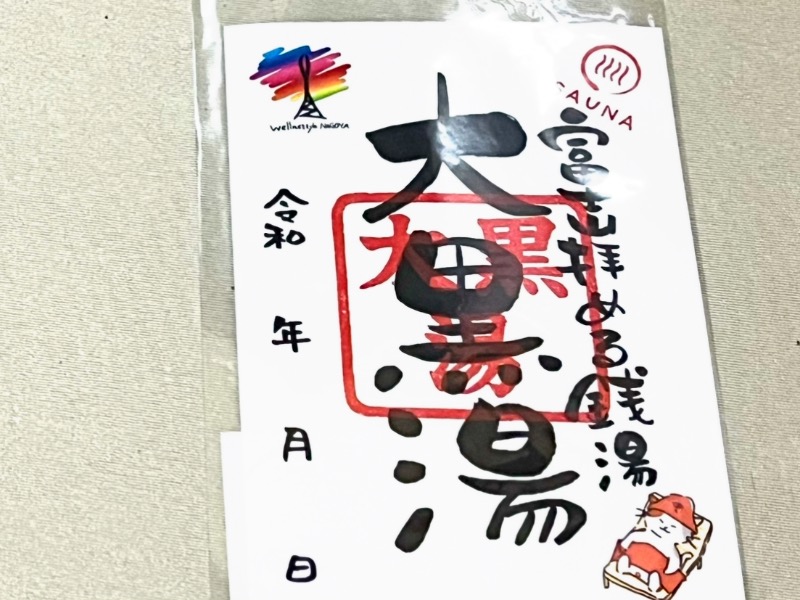 SAUNA
富士拝める銭湯
大黒湯
大黒湯
令和 年 月 日